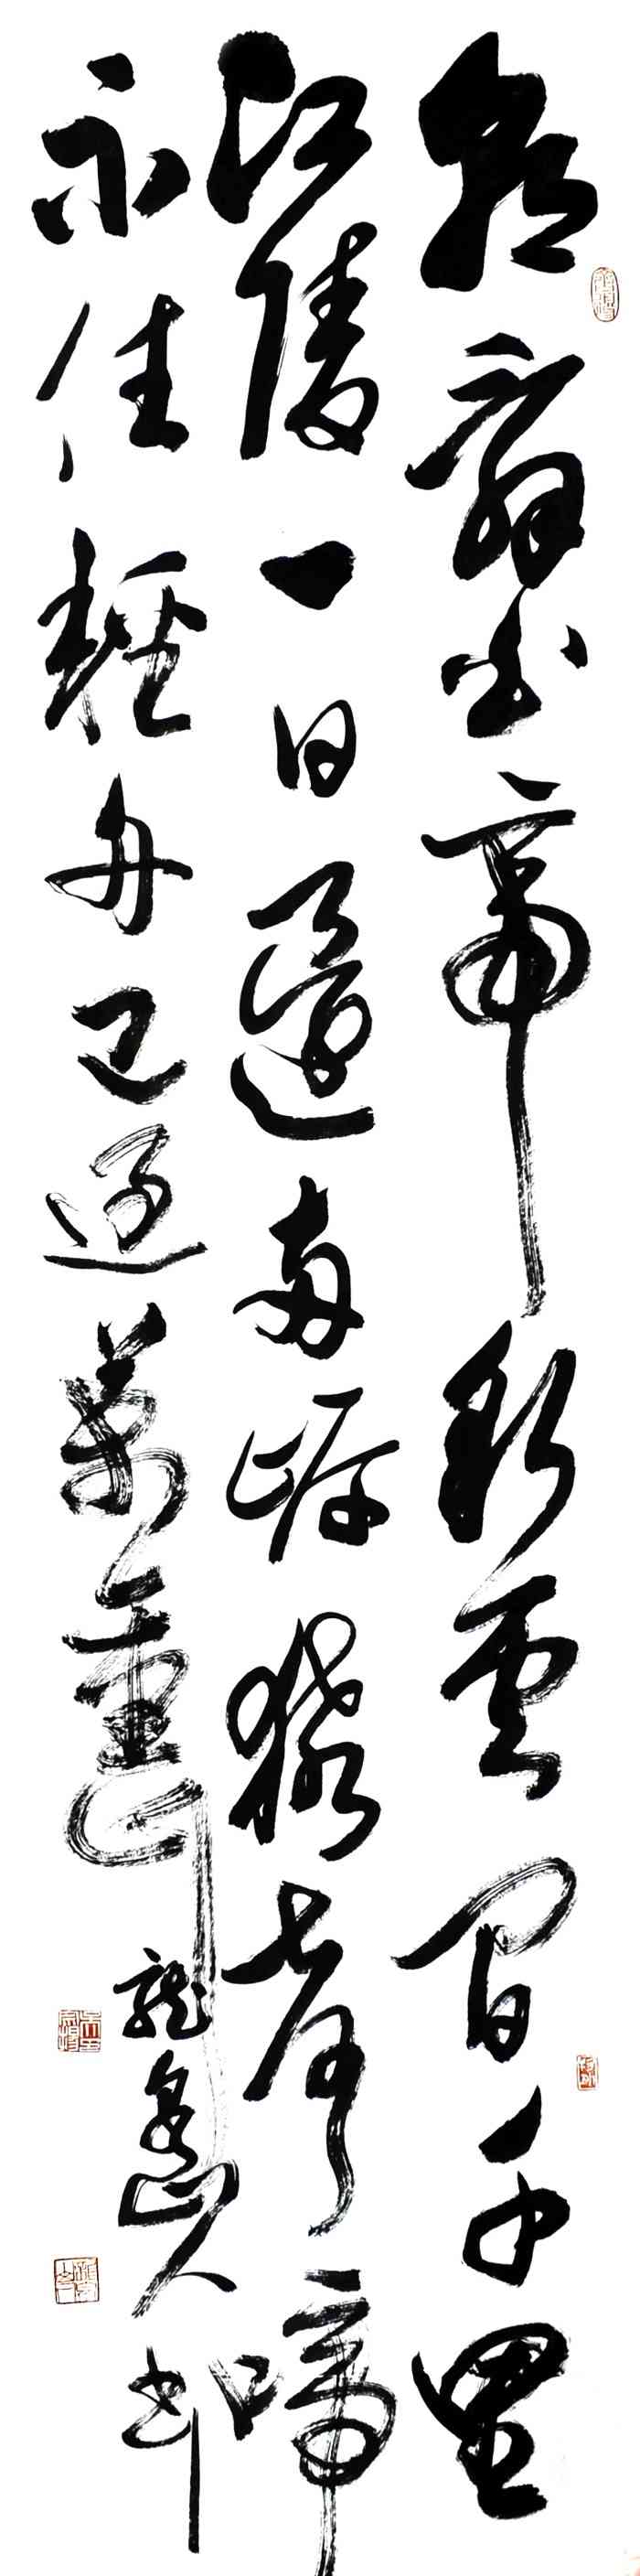 朝辭白帝彩雲間千里
江陵一日還兩岸猿聲啼
不住輕舟已過萬重山
龍泉山人書